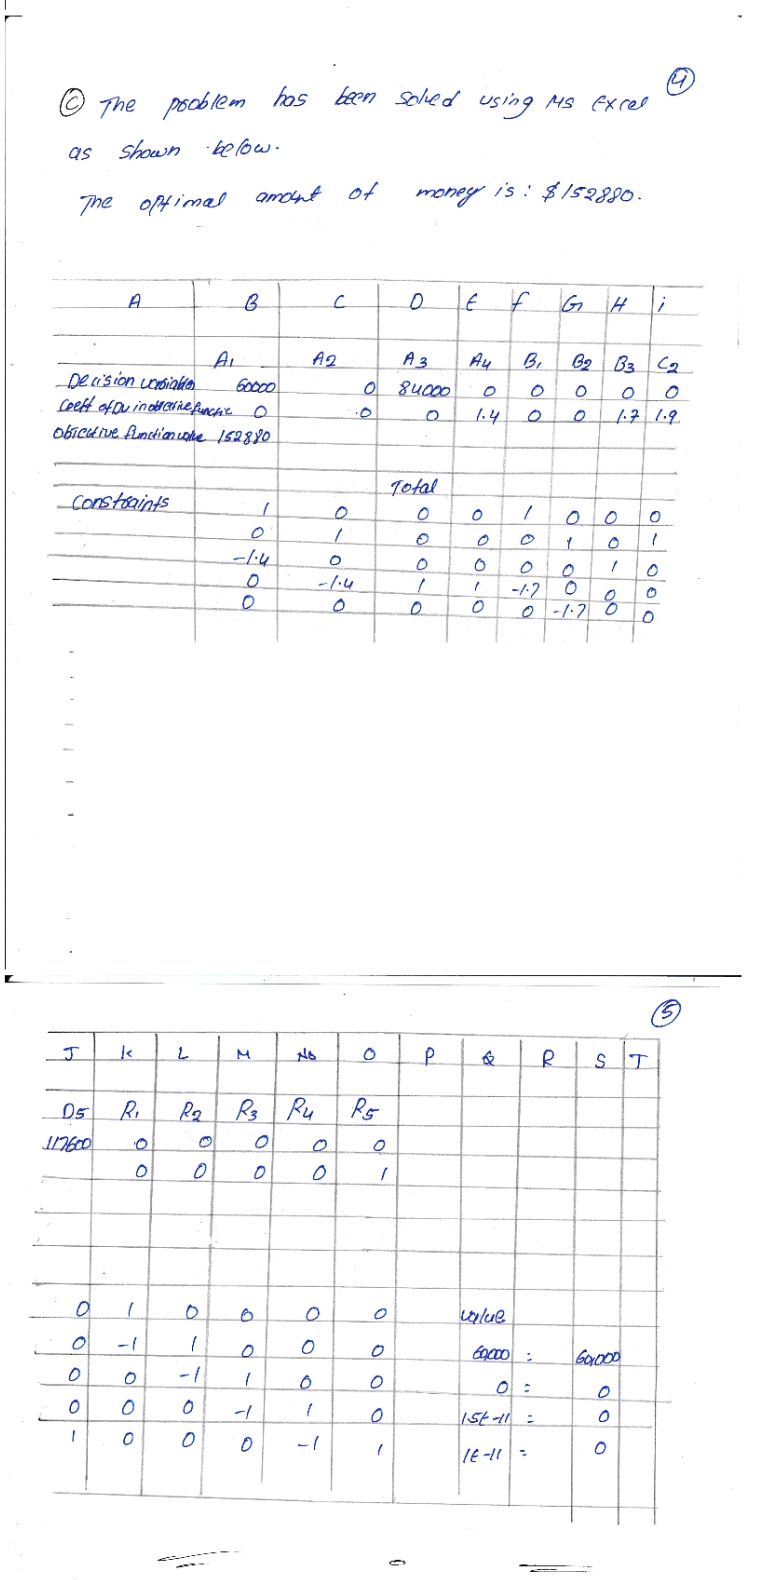 4
C The problem has been solved using MS Excel
as shown below.
The optimal amount of money is: $152880.
A B C D E f G H i
A1 A2 A3 A4 B1 B2 B3 C2
Decision variables 60000 0 84000 0 0 0 0 0
Coeff of DV in objective function 0 0 0 1.4 0 0 1.7 1.9
Objective function value 152880
Total
Constraints 1 0 0 0 1 0 0 0
0 1 0 0 0 1 0 1
-1.4 0 0 0 0 0 1 0
0 -1.4 1 1 -1.7 0 0 0
0 0 0 0 0 -1.7 0 0
5
J K L M O P Q R S T
D5 R1 R2 R3 R4 R5
117600 0 0 0 0 0
0 0 0 0 1
0 1 0 0 0 0 value
0 -1 1 0 0 0 60,000 = 60,000
0 0 -1 1 0 0 0 = 0
0 0 0 -1 1 0 1.5E-11 = 0
1 0 0 0 -1 1 1E-11 = 0